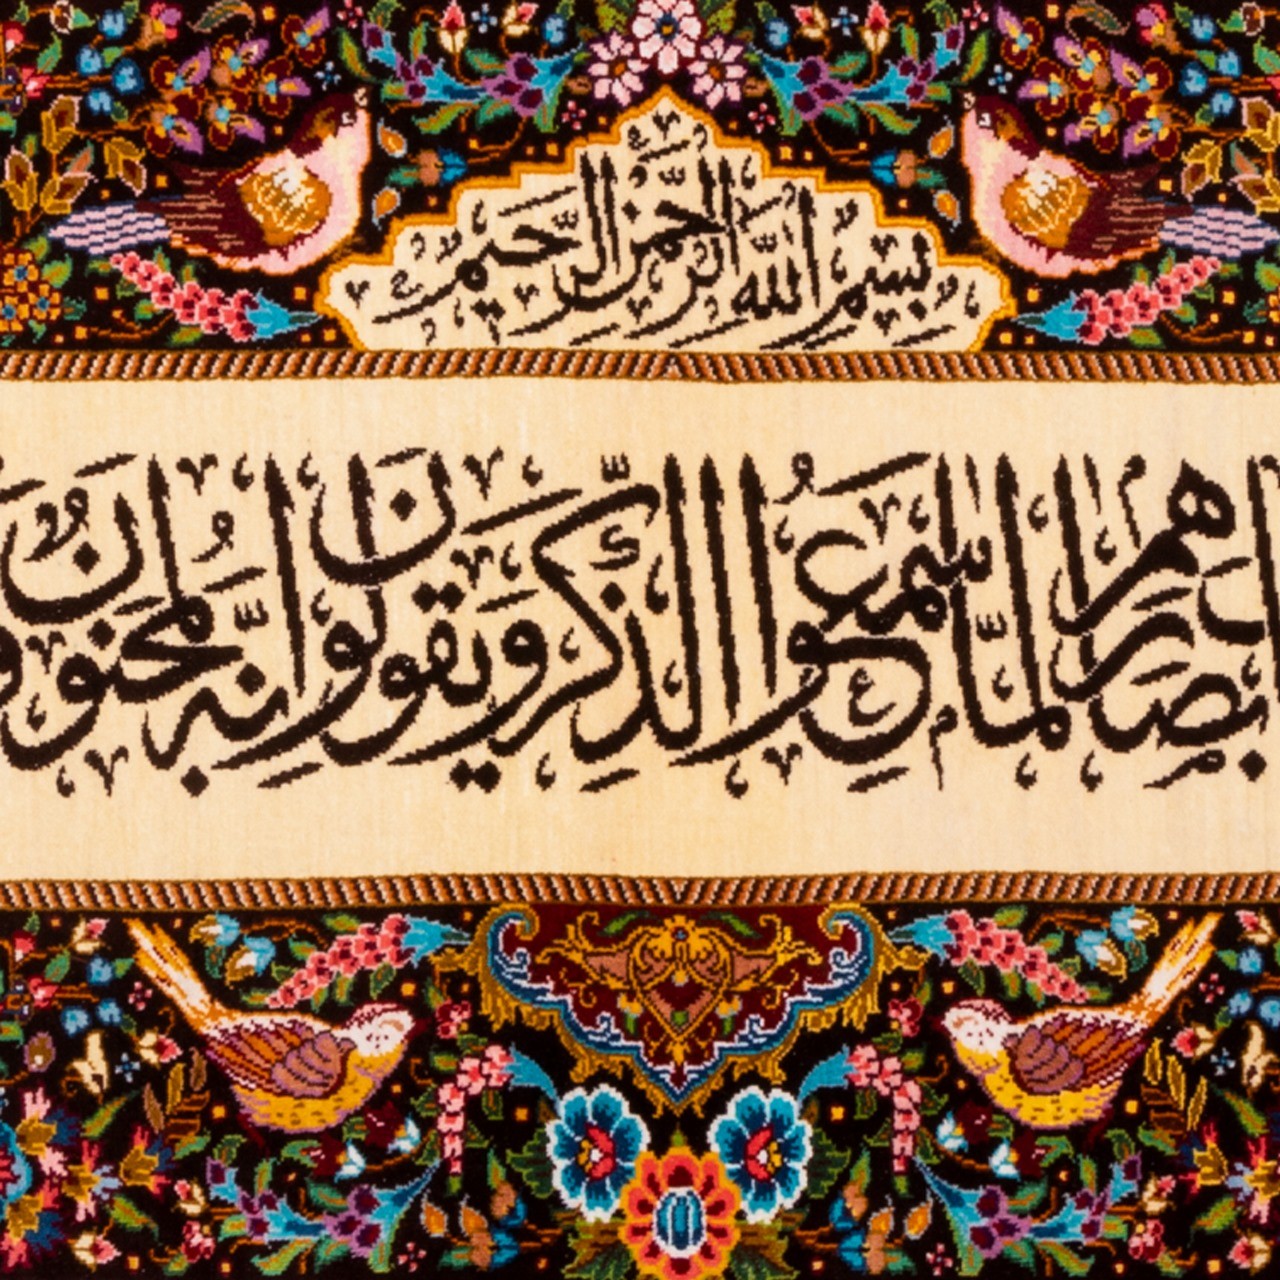 بسم الله الرحمن الرحيم
بابصارهم لما سمعوا الذكر ويقولون انه لمجنون